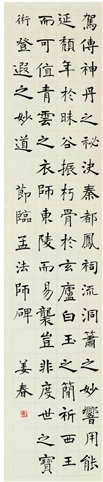 駕傳神丹之秘決秦都鳳祠流洞簫之妙響用能
延頹年於昧谷振朽骨於玄廬白玉之簡祈西王
而可值青雲之衣師東陵而易襲豈非度世之寶
術登遐之妙道 節臨孟法師碑 姜春